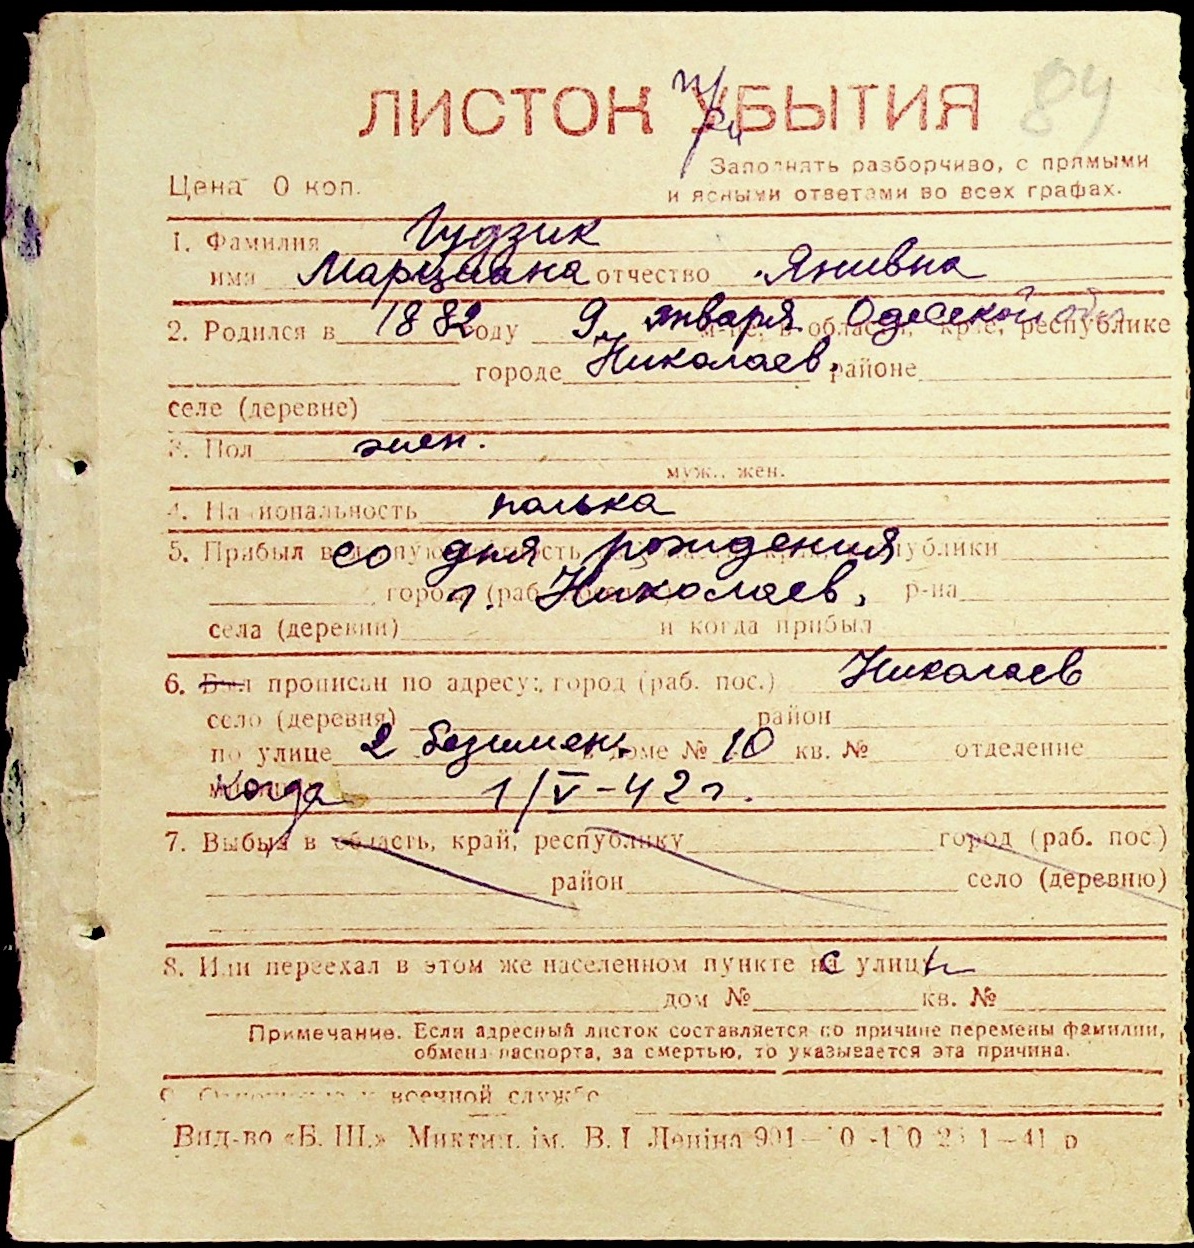 84
ЛИСТОК при УБЫТИЯ
Заполнять разборчиво, с прямыми
Цена 0 коп.
и ясными ответами во всех графах.
1. Фамилия Гудзик
имя Марциана отчество Янивна
2. Родился в 1882 году 9 января м-це, в области, крае, республике Одесской обл
городе Николаев, районе
селе (деревне)
3. Пол жен.
муж., жен.
4. Национальность полька
5. Прибыл в со дня рождения республики
города (раб. г. Николаев, р-на
села (деревни) и когда прибыл
6. Был прописан по адресу: город (раб. пос.) Николаев
село (деревня) район
по улице 2 безимен. в доме № 10 кв. № отделение
Когда 1/V-42 г.
7. Выбыл в область, край, республику город (раб. пос.)
район село (деревню)
8. Или переехал в этом же населенном пункте с улицы
дом № кв. №
Примечание. Если адресный листок составляется по причине перемены фамилии,
обмена паспорта, за смертью, то указывается эта причина.
9. Отношение к военной службе
Вид-во «Б. Ш.» Миктип. ім. В. І Леніна